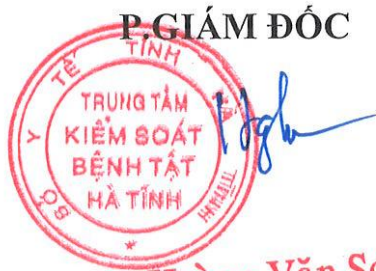 P.GIÁM ĐỐC
SỞ Y TẾ TỈNH HÀ
TRUNG TÂM
KIỂM SOÁT
BỆNH TẬT
HÀ TĨNH
Văn